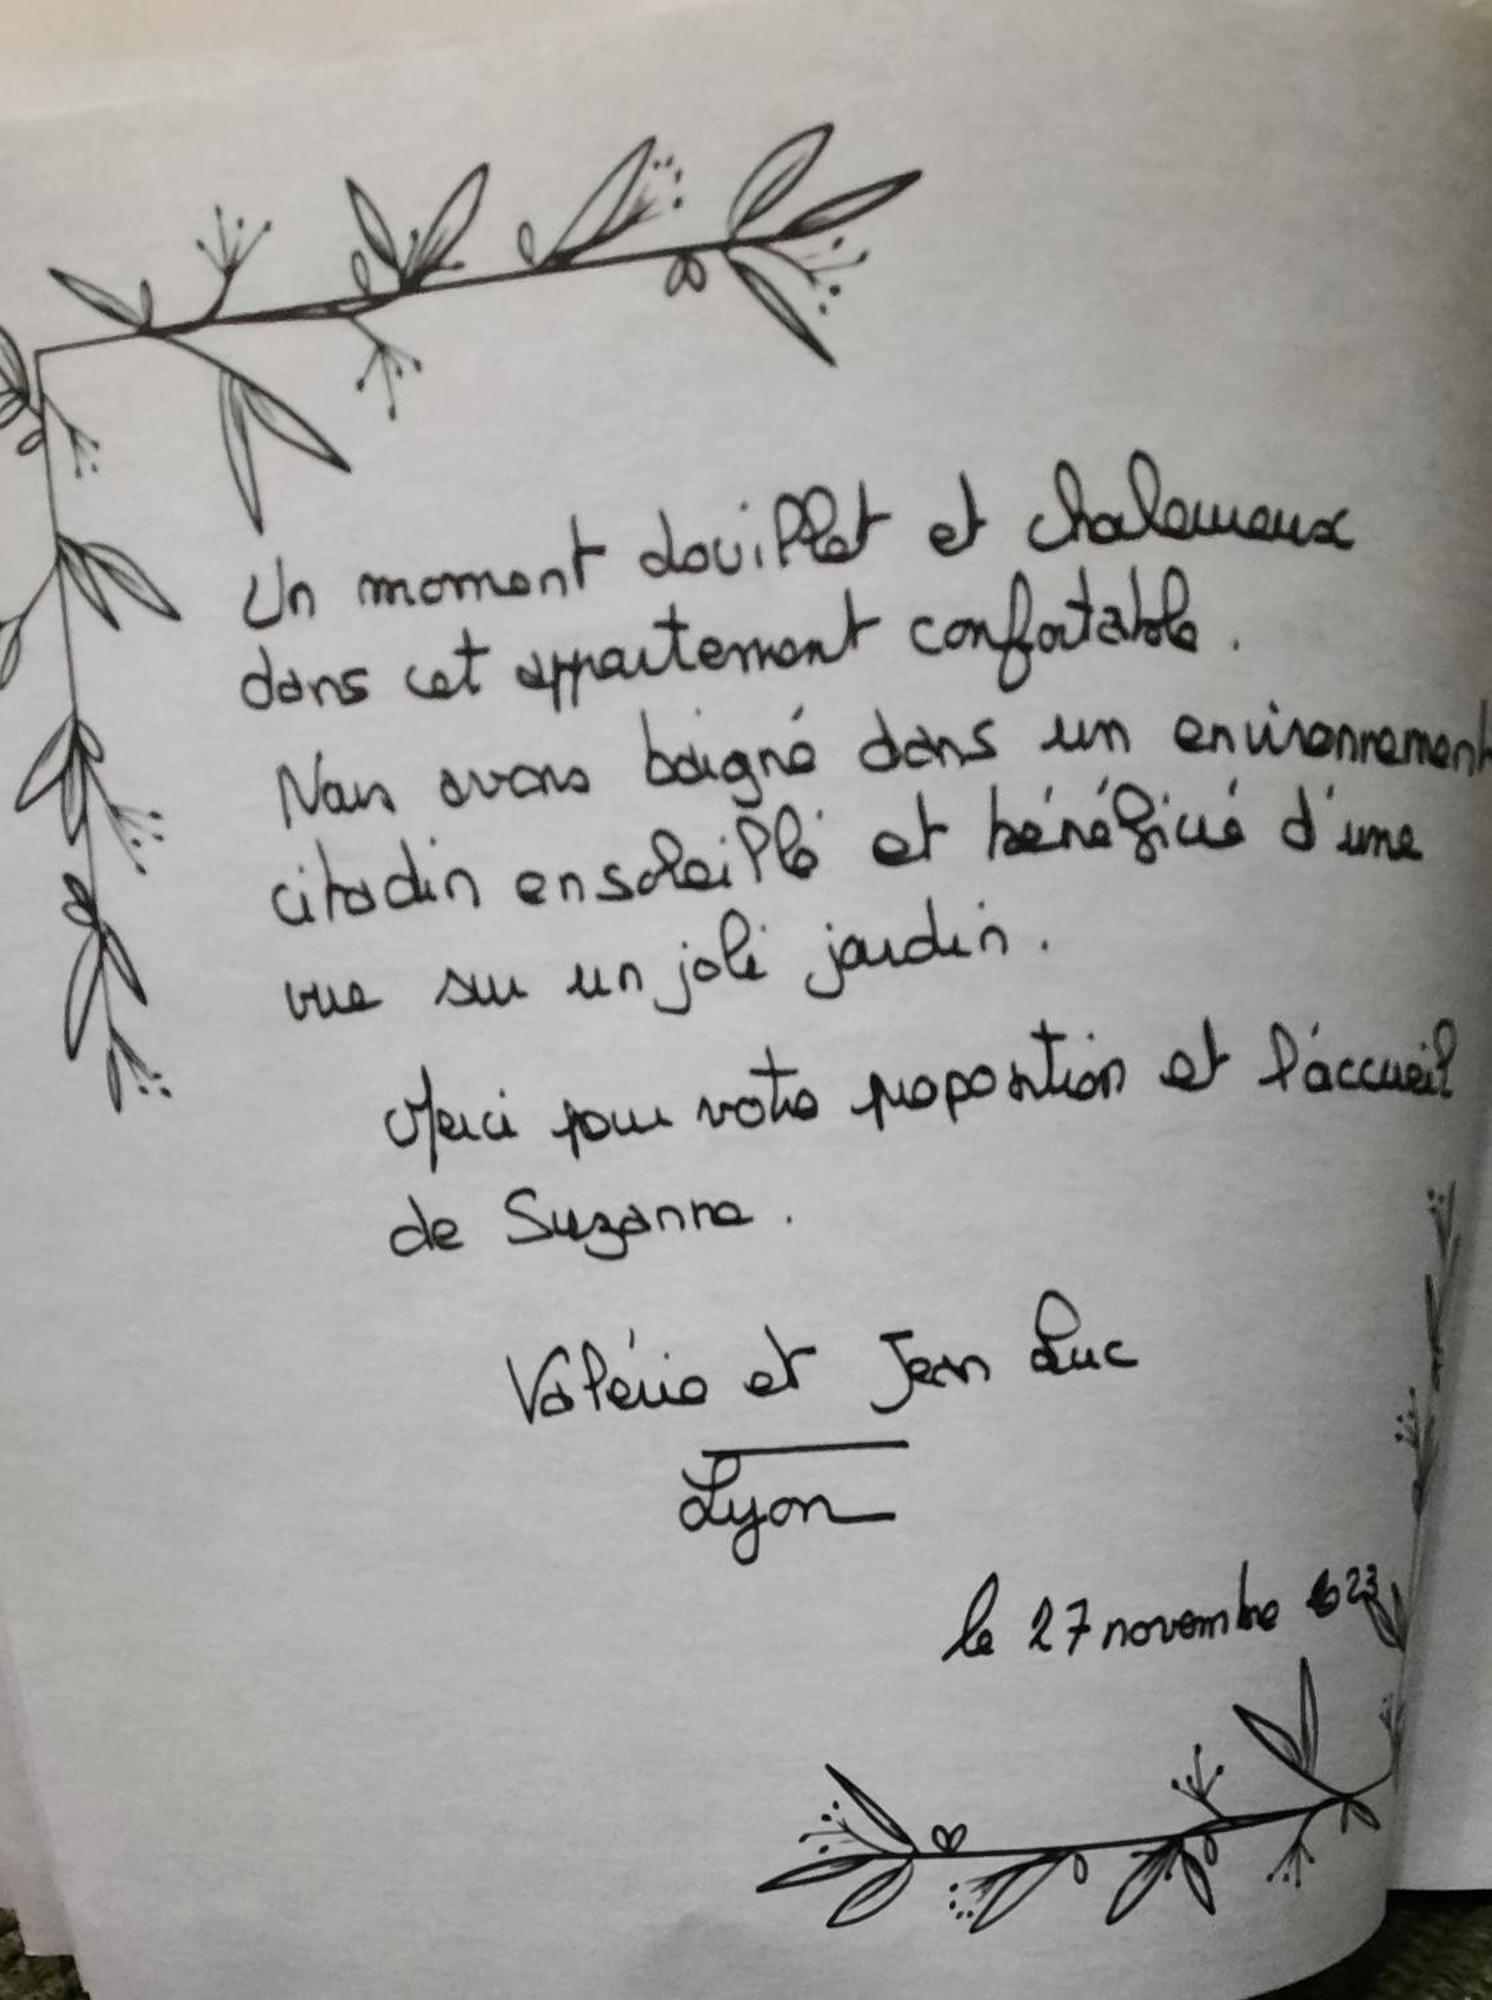 Un moment douillet et chaleureux
dans cet appartement confortable.
Nous avons baigné dans un environnement
citadin ensoleillé et bénéficié d'une
vue sur un joli jardin.
Merci pour votre proposition et l'accueil
de Suzanne.
Valérie et Jean Luc
Lyon
le 27 novembre 23